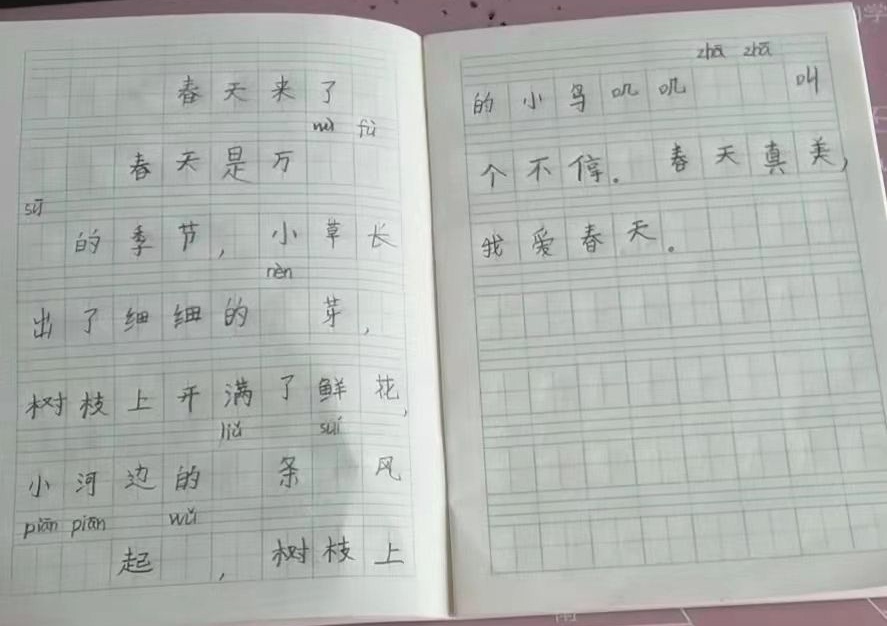 春天来了
wù fù
春天是万
sū
的季节，小草长
nèn
出了细细的 芽，
树枝上开满了鲜花，
liǔ suí
小河边的 条 风
piān piān wǔ
起 ，树枝上
zhā zhā
的小鸟叽叽 叫
个不停。春天真美，
我爱春天。